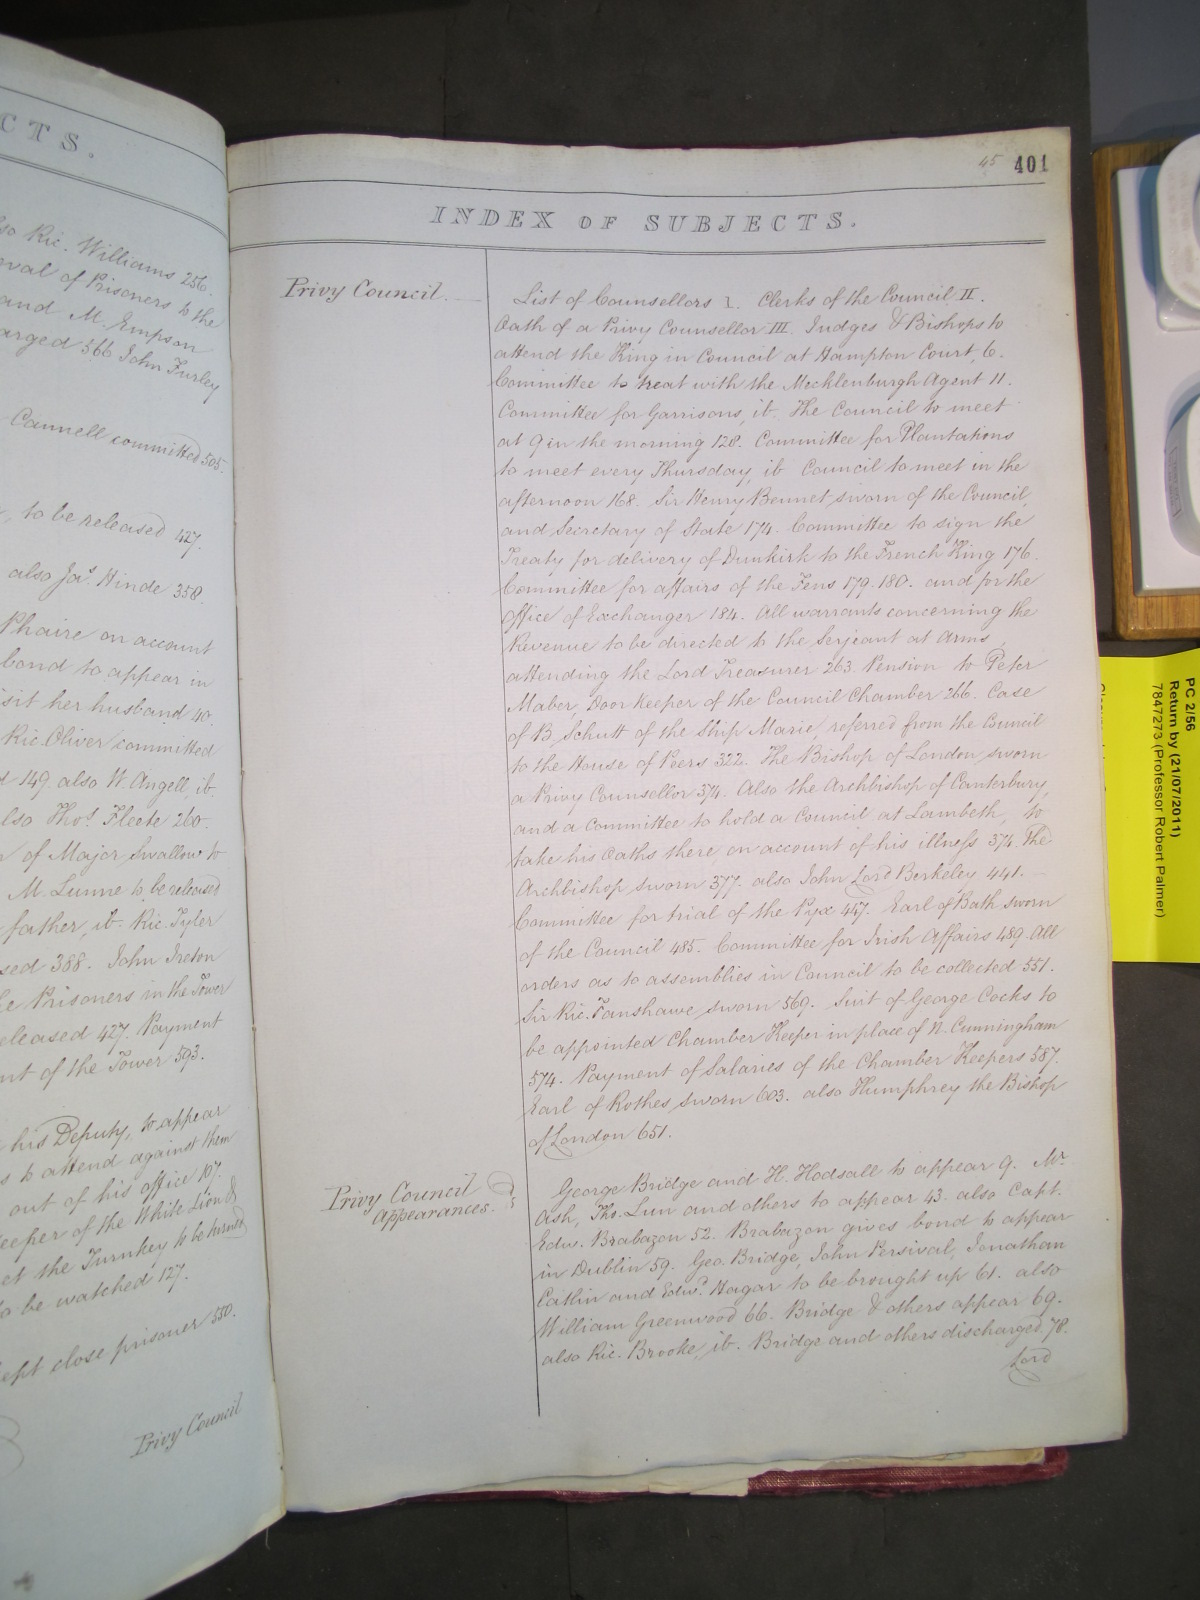 CTS.
so Ric. Williams 256.
oval of Prisoners to the
and M. Empson
arged 566 John Furley
Cannell committed 505.
to be released 427.
also Jas. Hinde 358.
Phaire on account
bond to appear in
isit her husband 40.
Ric. Oliver committed
d 149. also W. Angell, ib.
lso Thos. Fleete 260.
of Major Swallow to
M. Lunne to be released
father, ib. Ric. Tyler
sed 388. John Ireton
e Prisoners in the Tower
eleased 427. Payment
nt of the Tower 593.
his Deputy, to appear
s to attend against them
out of his office 107.
eeper of the White Lion &
et the Turnkey to be turned
o be watched 127.
ept close prisoner 550.
Privy Council
45 401
INDEX OF SUBJECTS.
Privy Council.
List of Counsellors I. Clerks of the Council II.
Oath of a Privy Counsellor III. Judges & Bishops to
attend the King in Council at Hampton Court, 6.
Committee to treat with the Mecklenburgh Agent 11.
Committee for Garrisons, ib. The Council to meet
at 9 in the morning 128. Committee for Plantations
to meet every Thursday, ib Council to meet in the
afternoon 168. Sir Henry Bennet sworn of the Council,
and Secretary of State 174. Committee to sign the
Treaty for delivery of Dunkirk to the French King 176.
Committee for affairs of the Fens 179. 180. and for the
Office of Exchanger 184. All warrants concerning the
Revenue to be directed to the Serjeant at Arms,
attending the Lord Treasurer 263. Pension to Peter
Maber, Door keeper of the Council Chamber 266. Case
of B. Schutt of the Ship Marie, referred from the Council
to the House of Peers 322. The Bishop of London sworn
a Privy Counsellor 374. Also the Archbishop of Canterbury,
and a Committee to hold a Council at Lambeth, to
take his Oaths there, on account of his illness 374. The
Archbishop sworn 377. also John Lord Berkeley 441.
Committee for trial of the Pyx 447. Earl of Bath sworn
of the Council 485. Committee for Irish Affairs 489. All
orders as to assemblies in Council to be collected 551.
Sir Ric. Fanshawe sworn 569. Suit of George Cocks to
be appointed Chamber Keeper in place of N. Cunningham
574. Payment of Salaries of the Chamber Keepers 587.
Earl of Rothes, sworn 603. also Humphrey the Bishop
of London 651.
Privy Council
Appearances.
George Bridge and H. Hodsall to appear 9. Mr.
Ash, Tho. Lun and others to appear 43. also Capt.
Edw. Brabazon 52. Brabazon gives bond to appear
in Dublin 59. Geo. Bridge, John Persival, Jonathan
Catlin and Edwd. Hagar to be brought up 61. also
William Greenwood 66. Bridge & others appear 69.
also Ric. Brooke, ib. Bridge and others discharged 78.
Lord
PC 2/56
Return by (21/07/2011)
7847273 (Professor Robert Palmer)